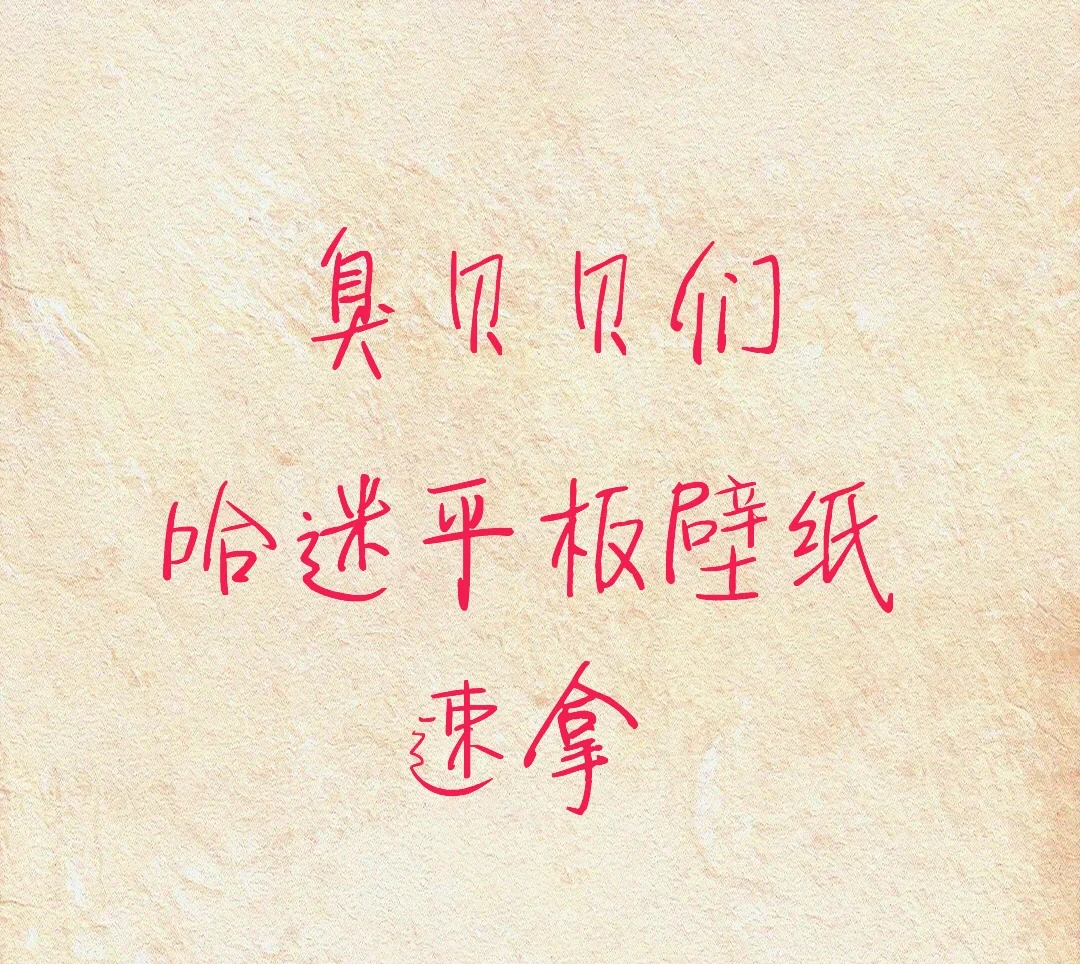 臭贝贝们
哈迷平板壁纸
速拿